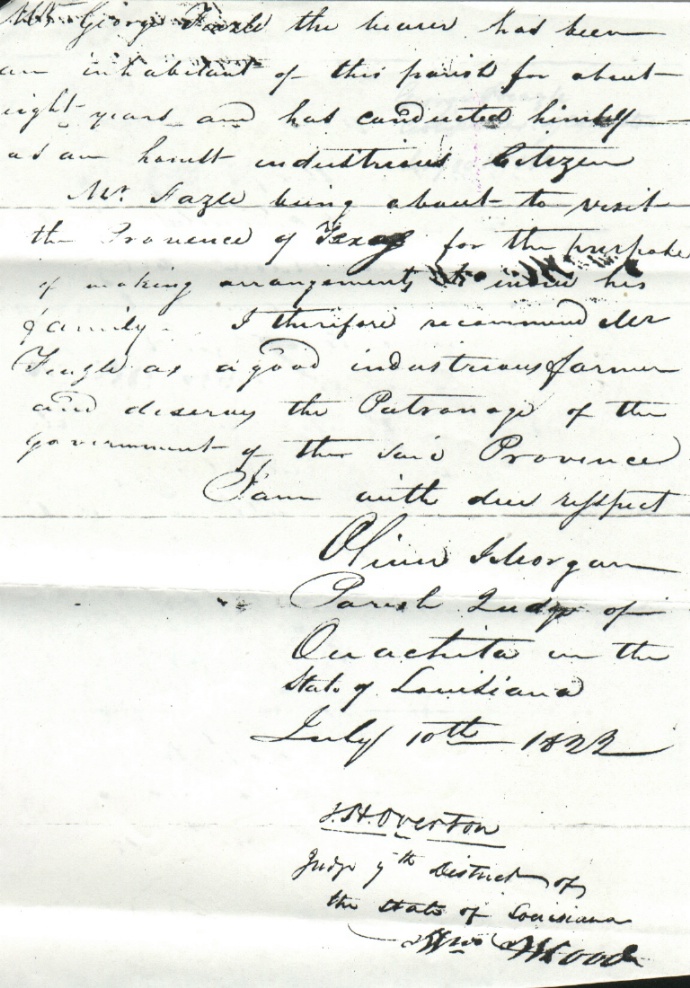 Mr. George Fazle the bearer has been
an inhabitant of this parish for about
eight years and has conducted himself
as an honest industrious Citizen
Mr. Fazle being about to visit
the Provence of Texas for the purpose
of making arrangements to his
family. I therefore recommend Mr
Feazle as a good industrious farmer
and deserves the Patronage of the
government of the said Provence
I am with due respect
Oliver J Morgan
Parish Judge of
Ouachita in the
State of Louisiana
July 10th 1822
J.H. Overton
Judge 7th District of
the state of Louisiana
Wood